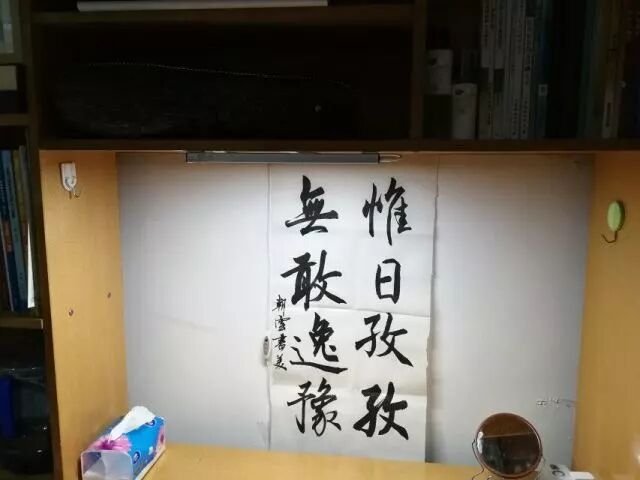 惟日孜孜
無敢逸豫